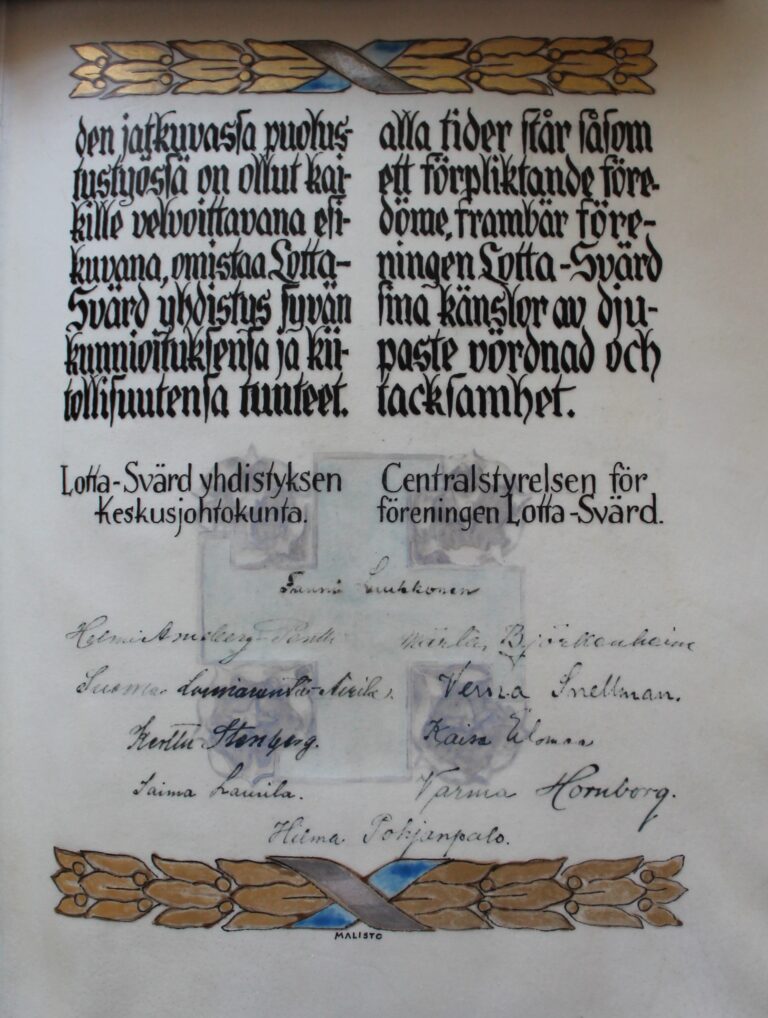 den jatkuvassa puolus-
tustyössä on ollut kai-
kille velvoittavana esi-
kuvana, omistaa Lotta-
Svärd yhdistys syvän
kunnioituksensa ja kii-
tollisuutensa tunteet.
alla tider står såsom
ett förpliktande före-
döme, frambär före-
ningen Lotta-Svärd
sina känslor av dju-
paste vördnad och
tacksamhet.
Lotta-Svärd yhdistyksen
Keskusjohtokunta.
Centralstyrelsen för
föreningen Lotta-Svärd.
Fanni Luukkonen
Helmi Arneberg-Pentti
Märta Björkenheim
Suoma Loimaranta-Airila
Verna Snellman.
Kerttu Stenberg.
Kaisa
Saima Laurila.
Varma Hornborg.
Hilma Pohjanpalo.
MALISTO